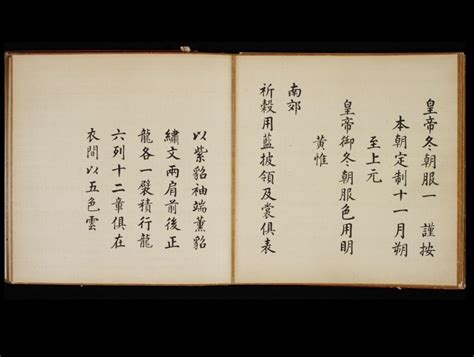 皇帝冬朝服一 謹按
本朝定制十一月朔
至上元
皇帝御冬朝服色用明
黃惟
南郊
祈穀用藍披領及裳俱表
以紫貂袖端薰貂
繡文兩肩前後正
龍各一襞積行龍
六列十二章俱在
衣間以五色雲